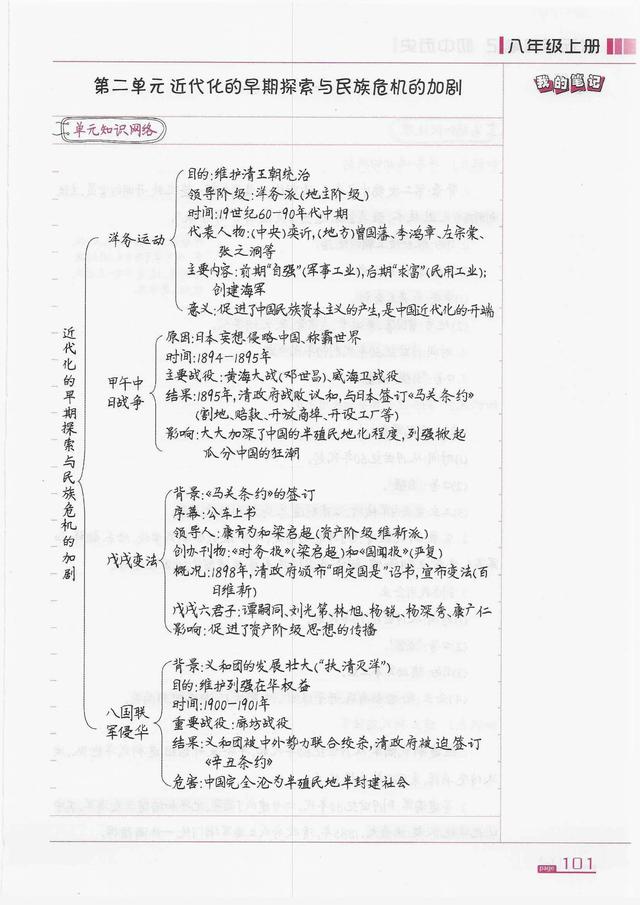 八年级上册
第二单元 近代化的早期探索与民族危机的加剧
我的笔记
单元知识网络
近代化的早期探索与民族危机的加剧
洋务运动
目的:维护清王朝统治
领导阶级:洋务派(地主阶级)
时间:19世纪60-90年代中期
代表人物:(中央)奕䜣,(地方)曾国藩、李鸿章、左宗棠、
张之洞等
主要内容:前期“自强”(军事工业),后期“求富”(民用工业);
创建海军
意义:促进了中国民族资本主义的产生,是中国近代化的开端
甲午中
日战争
原因:日本妄想侵略中国、称霸世界
时间:1894-1895年
主要战役:黄海大战(邓世昌)、威海卫战役
结果:1895年,清政府战败议和,与日本签订《马关条约》
(割地、赔款、开放商埠、开设工厂等)
影响:大大加深了中国的半殖民地化程度,列强掀起
瓜分中国的狂潮
戊戌变法
背景:《马关条约》的签订
序幕:公车上书
领导人:康有为和梁启超(资产阶级维新派)
创办刊物:《时务报》(梁启超)和《国闻报》(严复)
概况:1898年,清政府颁布“明定国是”诏书,宣布变法(百
日维新)
戊戌六君子:谭嗣同、刘光第、林旭、杨锐、杨深秀、康广仁
影响:促进了资产阶级思想的传播
八国联
军侵华
背景:义和团的发展壮大(“扶清灭洋”)
目的:维护列强在华权益
时间:1900-1901年
重要战役:廊坊战役
结果:义和团被中外势力联合绞杀,清政府被迫签订
《辛丑条约》
危害:中国完全沦为半殖民地半封建社会
page 101